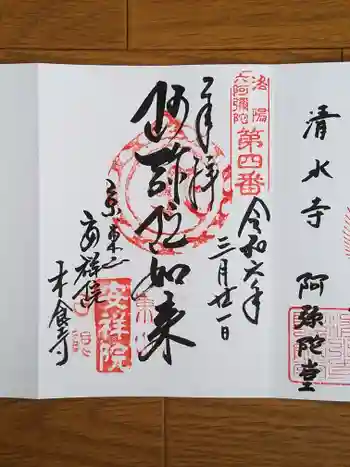 清水寺
阿弥陀堂
洛陽
六阿彌陀
第四番
令和六年
三月廿一日
奉拝
阿弥陀如来
京東山
安祥院
木食寺
安祥院